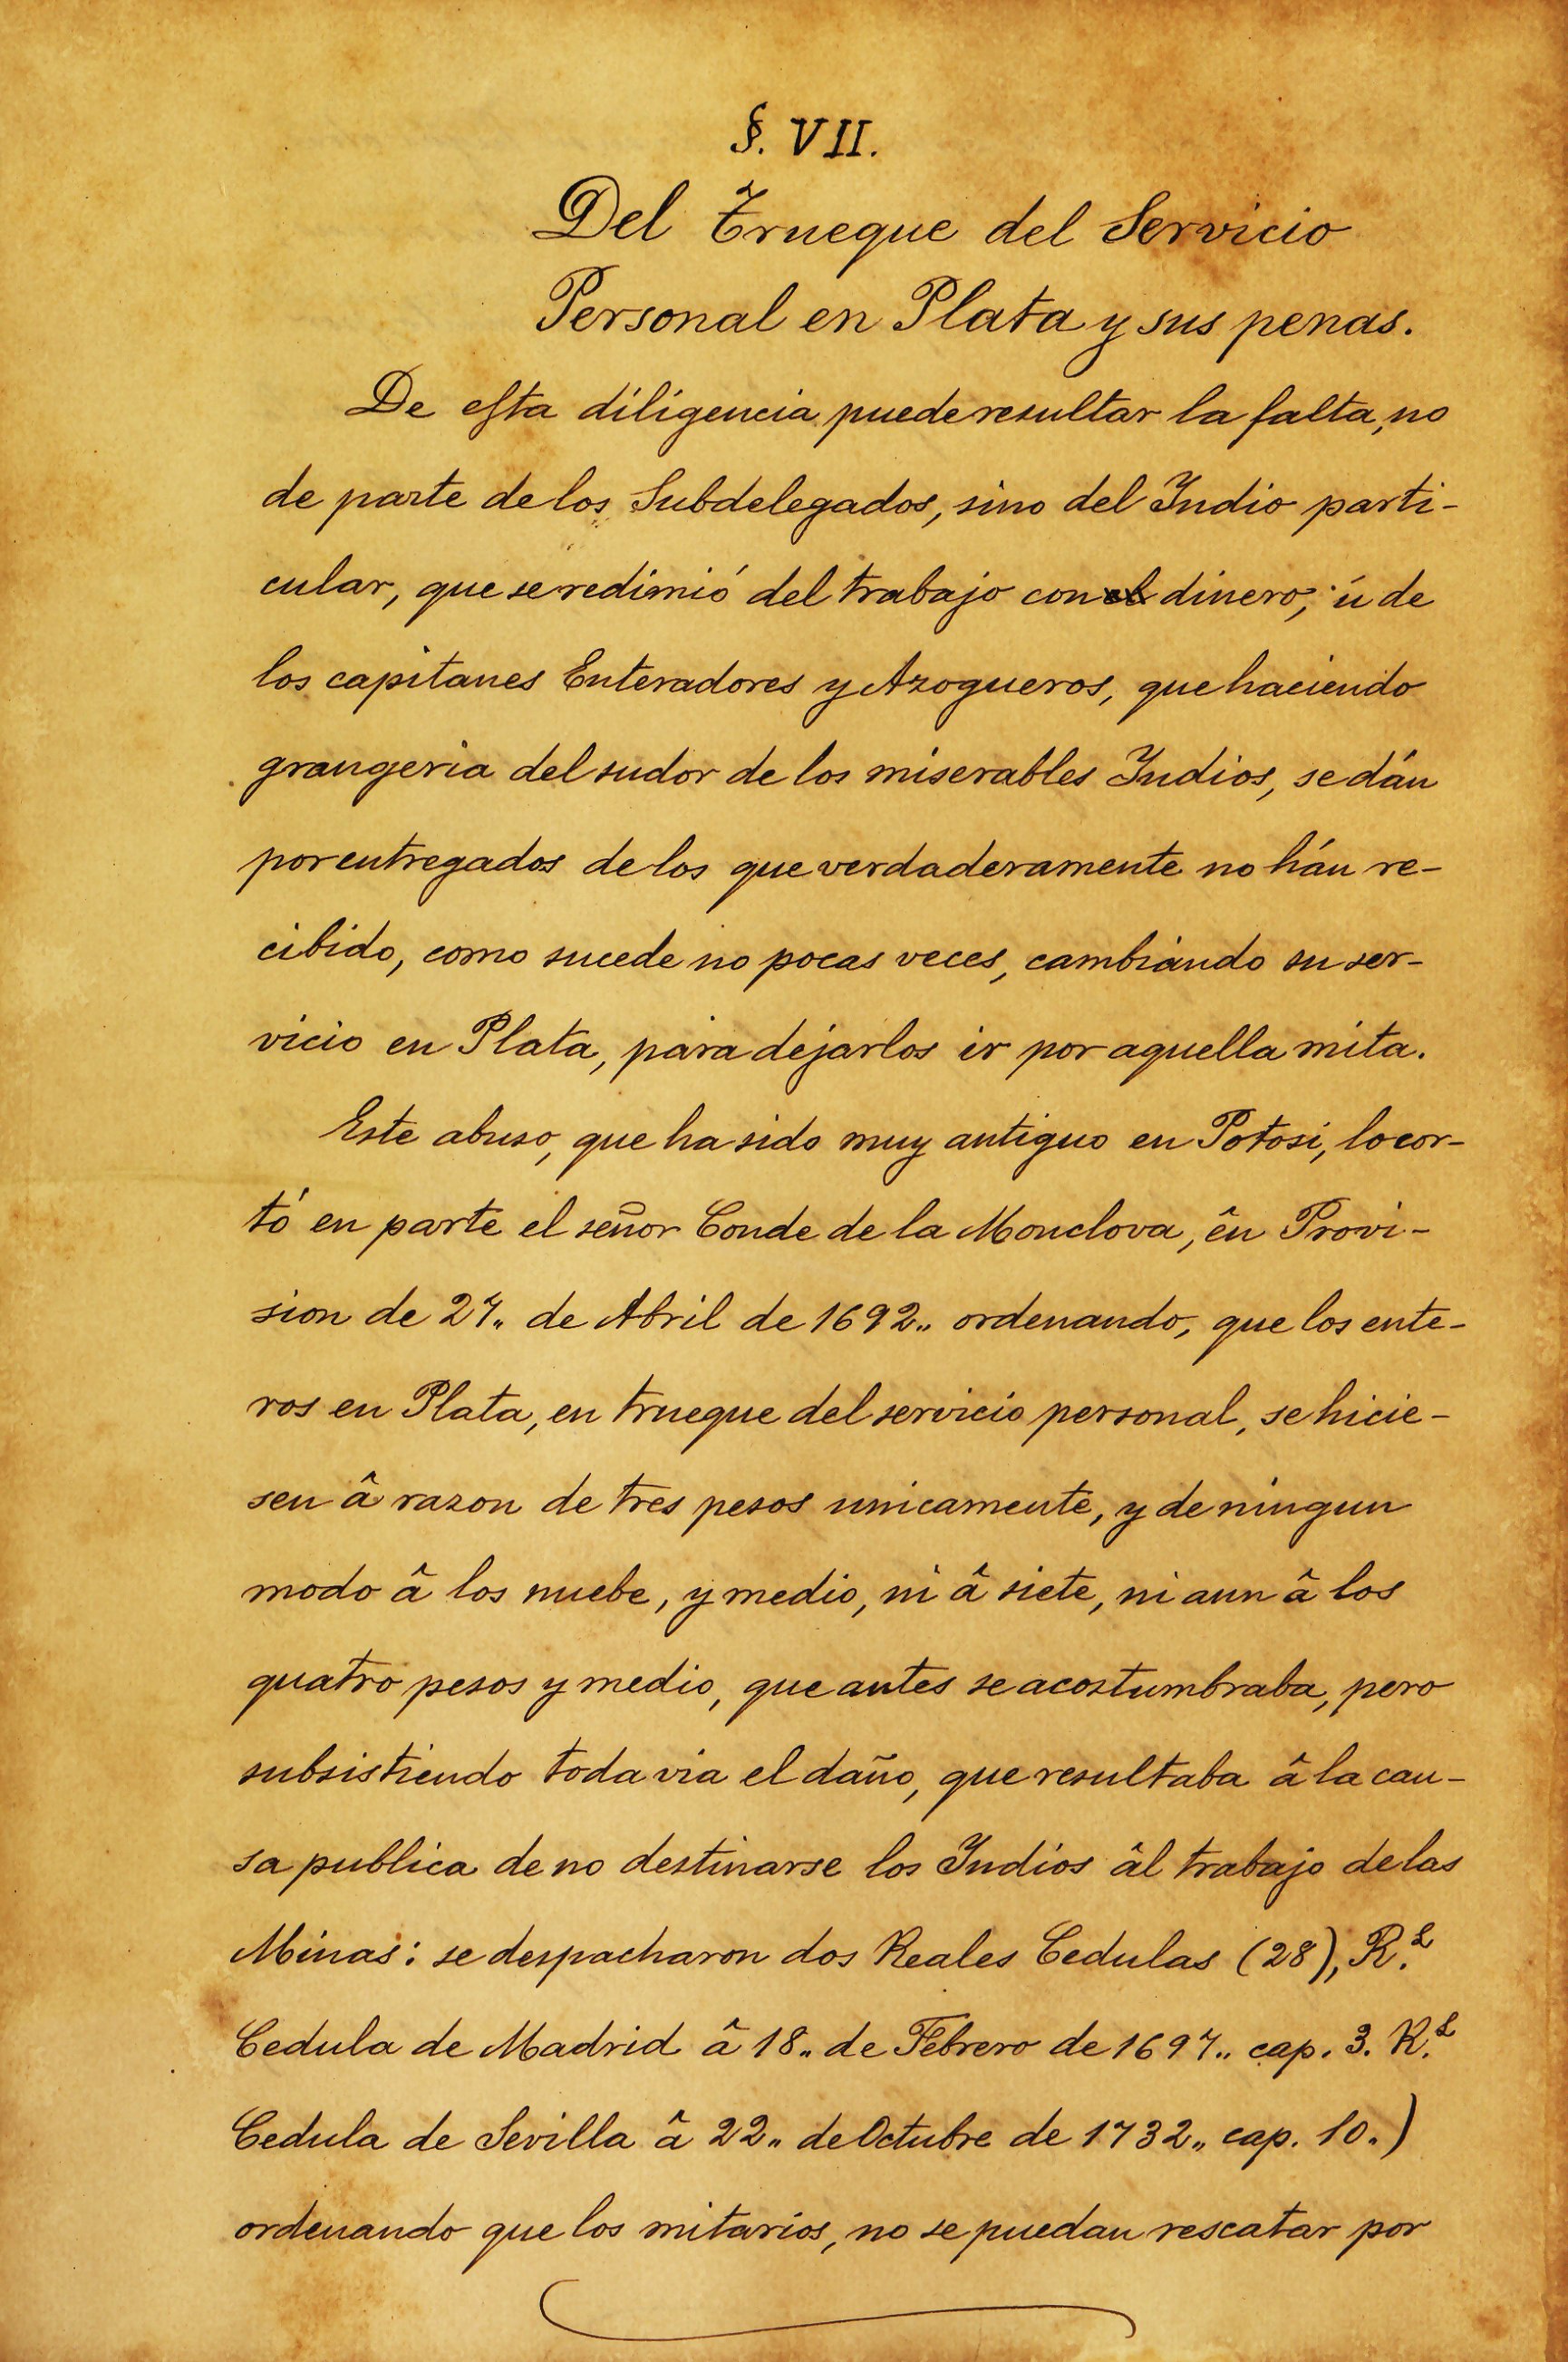 §. VII.
Del Trueque del Servicio
Personal en Plata y sus penas.
De eſta diligencia puede resultar la falta, no
de parte de los Subdelegados, sino del Indio parti-
cular, que se redimió del trabajo con el dinero, ú de
los capitanes Enteradores y Azogueros, que haciendo
grangeria del sudor de los miserables Indios, se dán
por entregados de los que verdaderamente no hán re-
cibido, como sucede no pocas veces, cambiando su ser-
vicio en Plata, para dejarlos ir por aquella mita.
Este abuso, que ha sido muy antiguo en Potosi, lo cor-
tó en parte el señor Conde de la Monclova, ên Provi-
sion de 27,, de Abril de 1692,, ordenando, que los ente-
ros en Plata, en trueque del servicio personal, se hicie-
sen â razon de tres pesos unicamente, y de ningun
modo â los nuebe, y medio, ni â siete, ni aun â los
quatro pesos y medio, que antes se acostumbraba, pero
subsistiendo toda via el daño, que resultaba â la cau-
sa publica de no destinarse los Indios âl trabajo de las
Minas: se despacharon dos Reales Cedulas (28), R.l
Cedula de Madrid â 18,, de Febrero de 1697,, cap. 3. R.l
Cedula de Sevilla â 22,, de Octubre de 1732,, cap. 10.)
ordenando que los mitarios, no se puedan rescatar por